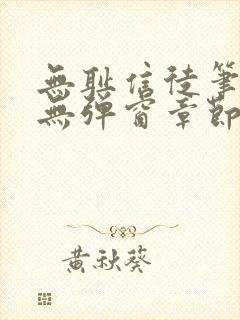 無耻信徒筆
無彈窗章節
黃秋葵